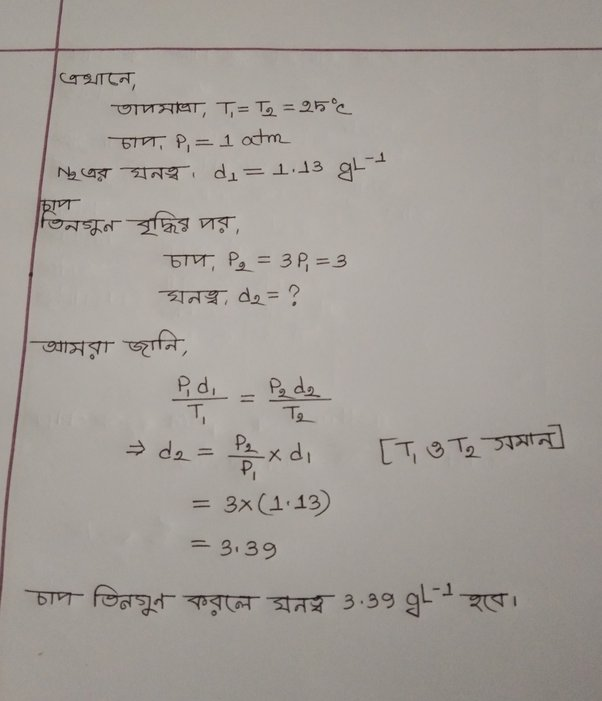 এখানে,
তাপমাত্রা, T₁ = T₂ = 25°C
চাপ, P₁ = 1 atm
N₂ এর ঘনত্ব, d₁ = 1.13 gL⁻¹
চাপ
তিনগুন বৃদ্ধির পর,
চাপ, P₂ = 3P₁ = 3
ঘনত্ব, d₂ = ?
আমরা জানি,
P₁d₁/T₁ = P₂d₂/T₂
⇒ d₂ = P₂/P₁ × d₁ [T₁ ও T₂ সমান]
= 3×(1.13)
= 3.39
চাপ তিনগুন করলে ঘনত্ব 3.39 gL⁻¹ হবে।